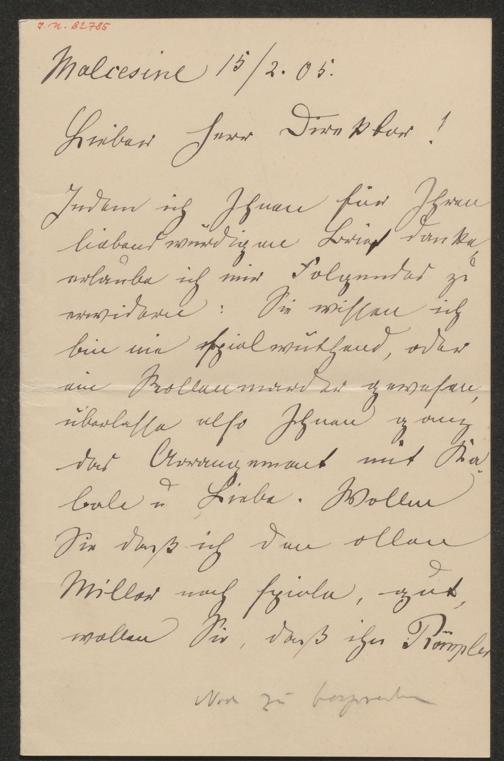 J. N. 82785
Malcesine 15/2. 05.
Lieber Herr Direktor!
Indem ich Ihnen für Ihren
liebenswürdigen Brief danke,
erlaube ich mir Folgendes zu
erwidern: Sie wissen ich
bin nie spielwüthend, oder
ein Rollenmarder gewesen,
überlasse also Ihnen ganz
das Arrangement mit Ka
bale u Liebe. Wollen
Sie daß ich den ollen
Miller noch spiele, gut,
wollen Sie, daß ihn Römpler
zu besprechen